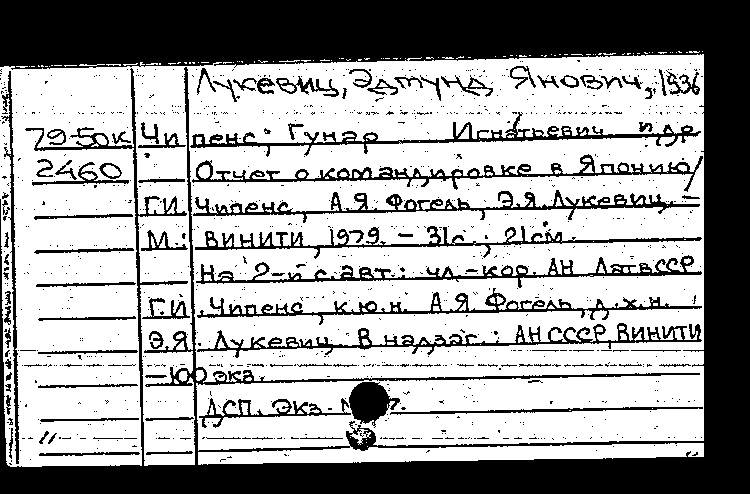 Лукевиц, Эдмунд Янович, 1936
79-50к Чипенс, Гунар Игнатьевич и др
2460 Отчет о командировке в Японию/
Г.И. Чипенс, А.Я. Фогель, Э.Я. Лукевиц. –
М.: ВИНИТИ, 1979. – 31с.; 21см.
На 2-й с. авт.: чл.-кор. АН ЛатвССР
Г.И. Чипенс, к.ю.н. А.Я. Фогель, д.х.н.
Э.Я. Лукевиц. В надзаг.: АН СССР, ВИНИТИ
– 100 экз.
ДСП. Экз.